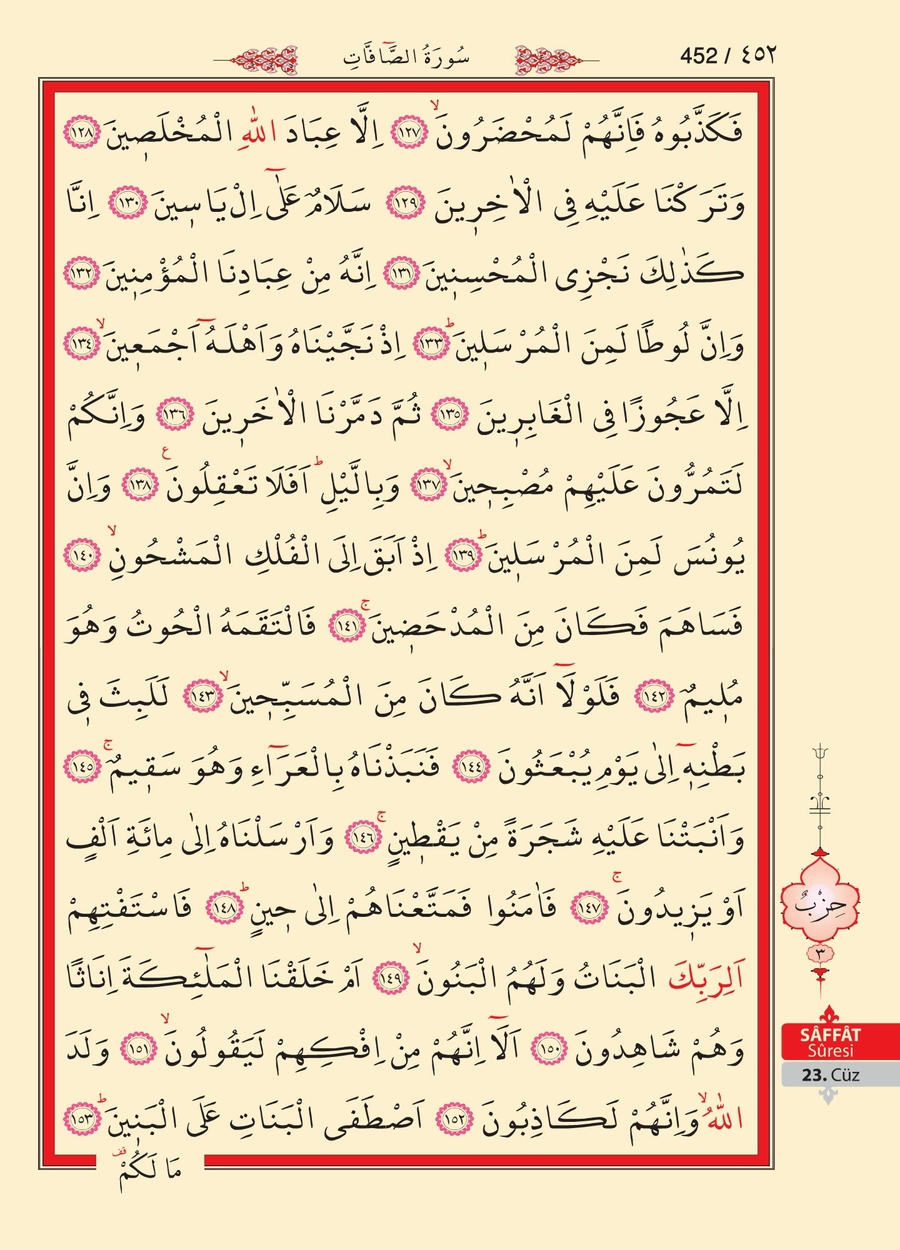 سُورَةُ الصَّٓافَّاتِ
452 / ٤٥٢
فَكَذَّبُوهُ فَاِنَّهُمْ لَمُحْضَرُونَۙ ﴿١٢٧﴾ اِلَّا عِبَادَ اللّٰهِ الْمُخْلَص۪ينَ ﴿١٢٨﴾
وَتَرَكْنَا عَلَيْهِ فِى الْاٰخِر۪ينَ ﴿١٢٩﴾ سَلَامٌ عَلٰٓى اِلْ يَاس۪ينَ ﴿١٣٠﴾ اِنَّا
كَذٰلِكَ نَجْزِى الْمُحْسِن۪ينَ ﴿١٣١﴾ اِنَّهُ مِنْ عِبَادِنَا الْمُؤْمِن۪ينَ ﴿١٣٢﴾
وَاِنَّ لُوطًا لَمِنَ الْمُرْسَل۪ينَۜ ﴿١٣٣﴾ اِذْ نَجَّيْنَاهُ وَاَهْلَهُٓ اَجْمَع۪ينَۙ ﴿١٣٤﴾
اِلَّا عَجُوزًا فِى الْغَابِر۪ينَ ﴿١٣٥﴾ ثُمَّ دَمَّرْنَا الْاٰخَر۪ينَ ﴿١٣٦﴾ وَاِنَّكُمْ
لَتَمُرُّونَ عَلَيْهِمْ مُصْبِح۪ينَۙ ﴿١٣٧﴾ وَبِالَّيْلِۜ اَفَلَا تَعْقِلُونَ ع ﴿١٣٨﴾ وَاِنَّ
يُونُسَ لَمِنَ الْمُرْسَل۪ينَۜ ﴿١٣٩﴾ اِذْ اَبَقَ اِلَى الْفُلْكِ الْمَشْحُونِۙ ﴿١٤٠﴾
فَسَاهَمَ فَكَانَ مِنَ الْمُدْحَض۪ينَۚ ﴿١٤١﴾ فَالْتَقَمَهُ الْحُوتُ وَهُوَ
مُل۪يمٌ ﴿١٤٢﴾ فَلَوْلَٓا اَنَّهُ كَانَ مِنَ الْمُسَبِّح۪ينَۙ ﴿١٤٣﴾ لَلَبِثَ ف۪ى
بَطْنِه۪ٓ اِلٰى يَوْمِ يُبْعَثُونَ ﴿١٤٤﴾ فَنَبَذْنَاهُ بِالْعَرَٓاءِ وَهُوَ سَق۪يمٌۚ ﴿١٤٥﴾
وَاَنْبَتْنَا عَلَيْهِ شَجَرَةً مِنْ يَقْط۪ينٍۚ ﴿١٤٦﴾ وَاَرْسَلْنَاهُ اِلٰى مِائَةِ اَلْفٍ
اَوْ يَز۪يدُونَۚ ﴿١٤٧﴾ فَاٰمَنُوا فَمَتَّعْنَاهُمْ اِلٰى ح۪ينٍۜ ﴿١٤٨﴾ فَاسْتَفْتِهِمْ
اَلِرَبِّكَ الْبَنَاتُ وَلَهُمُ الْبَنُونَۙ ﴿١٤٩﴾ اَمْ خَلَقْنَا الْمَلٰٓئِكَةَ اِنَاثًا
وَهُمْ شَاهِدُونَ ﴿١٥٠﴾ اَلَٓا اِنَّهُمْ مِنْ اِفْكِهِمْ لَيَقُولُونَۙ ﴿١٥١﴾ وَلَدَ
اللّٰهُۙ وَاِنَّهُمْ لَكَاذِبُونَ ﴿١٥٢﴾ اَصْطَفَى الْبَنَاتِ عَلَى الْبَن۪ينَۜ ﴿١٥٣﴾
مَا لَكُمْ قف
حِزْبٌ
٣
SÂFFÂT
Sûresi
23. Cüz